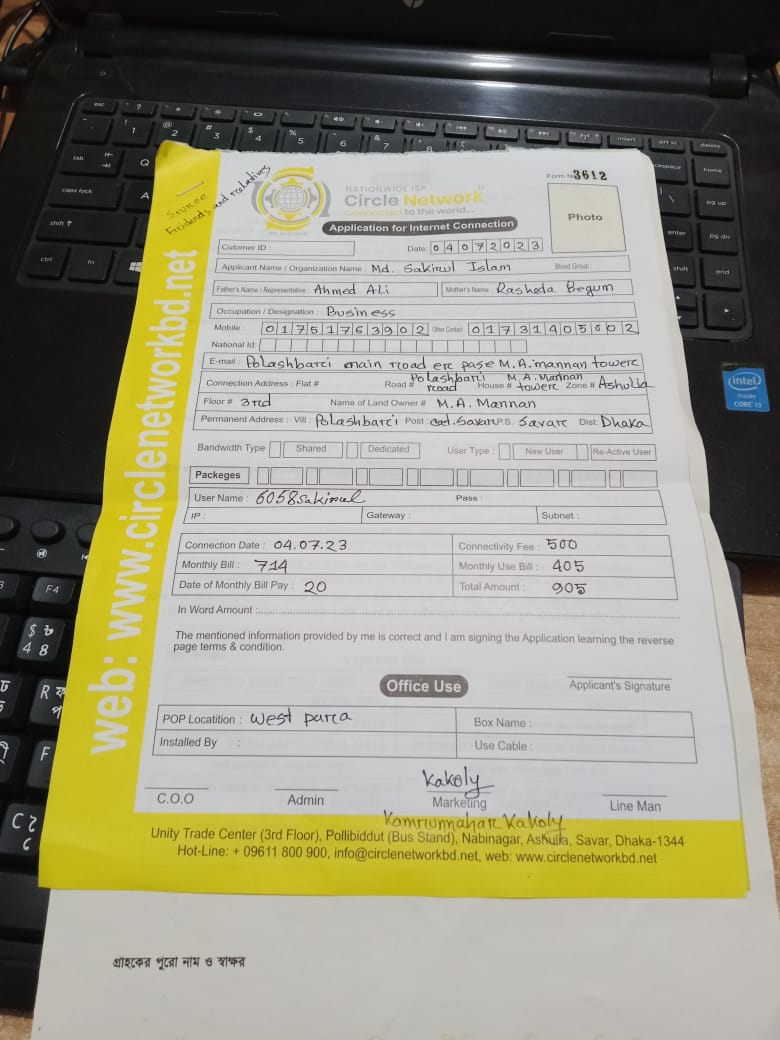 Source
Friends and relatives
NATIONWIDE ISP
Circle Network
Connected to the world...
Form No 3612
Photo
Application for Internet Connection
Cutomer ID :
Date: 04072023
Applicant Name / Organization Name : Md. Sakirul Islam Blood Group
Father's Name / Representative : Ahmed Ali Mother's Name : Rasheda Begum
Occupation / Designation : Business
Mobile : 01751763902 Other Contact : 01731405602
National Id:
E-mail : Polashbari main road er pase M.A.mannan tower
Connection Address : Flat # Road # Polashbari road House # M.A. Mannan tower Zone # Ashulia
Floor # 3rd Name of Land Owner # M.A. Mannan
Permanent Address : Vill : Polashbari Post : Savar P.S. Savar Dist: Dhaka
Bandwidth Type Shared Dedicated User Type : New User Re-Active User
Packeges
User Name : 6058sakirul Pass :
IP : Gateway : Subnet :
Connection Date : 04.07.23 Connectivity Fee : 500
Monthly Bill : 714 Monthly Use Bill : 405
Date of Monthly Bill Pay : 20 Total Amount : 905
In Word Amount :
The mentioned information provided by me is correct and I am signing the Application learning the reverse
page terms & condition.
Office Use
Applicant's Signature
POP Locatition : West para Box Name :
Installed By : Use Cable :
Kakoly
C.O.O Admin Marketing Line Man
Kamrunnahar Kakoly
Unity Trade Center (3rd Floor), Pollibiddut (Bus Stand), Nabinagar, Ashulia, Savar, Dhaka-1344
Hot-Line: + 09611 800 900, info@circlenetworkbd.net, web: www.circlenetworkbd.net
web: www.circlenetworkbd.net
গ্রাহকের পুরো নাম ও স্বাক্ষর
intel
inside
CORE i3